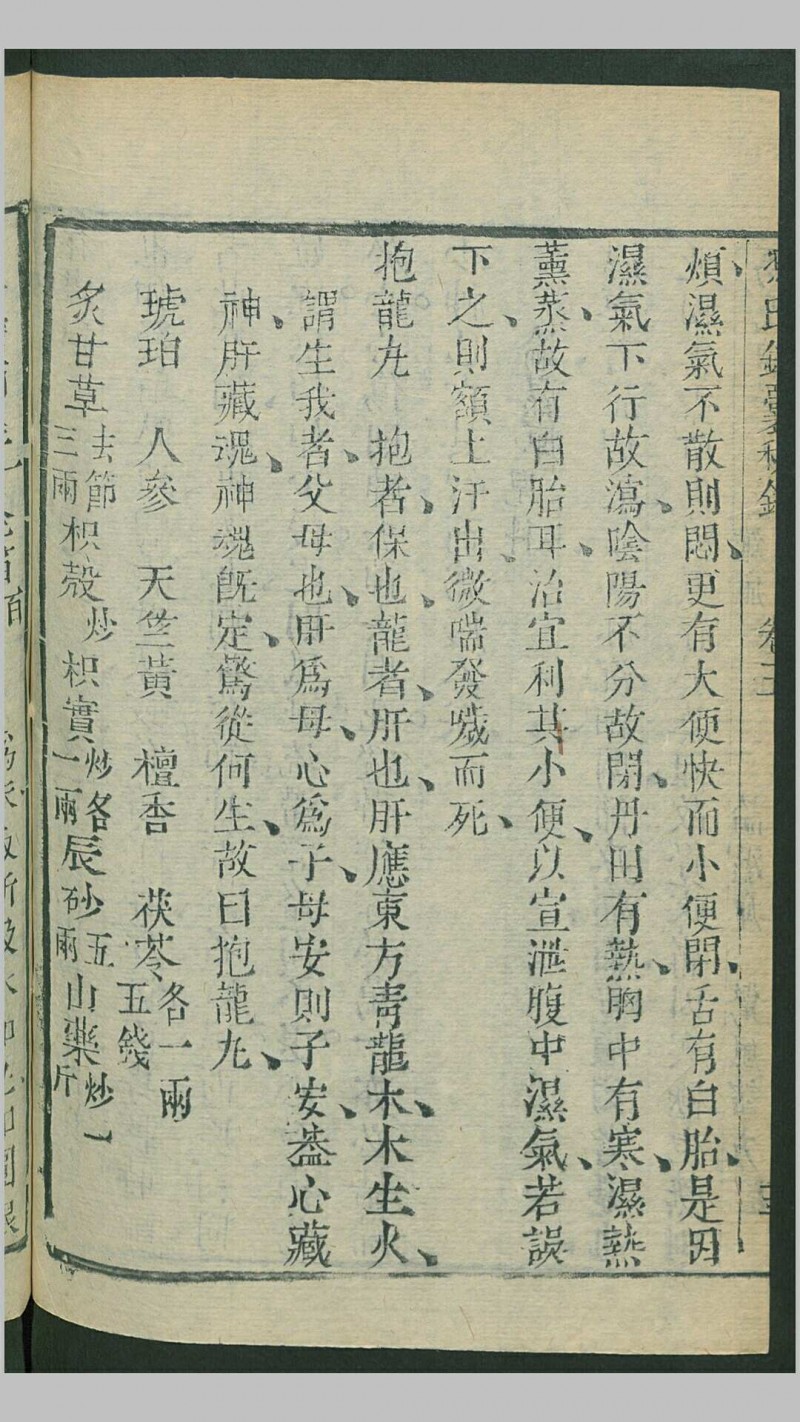 煩濕氣不散則悶更有大便快而小便閉舌有白胎是因
濕氣下行故瀉陰陽不分故閉丹田有熱胸中有寒濕熱
薰蒸故有白胎耳治宜利其小便以宣泄腹中濕氣若誤
下之則額上汗出微喘發噦而死
抱龍丸　抱者保也龍者肝也肝應東方青龍木木生火
謂生我者父母也肝爲母心爲子母安則子安葢心藏
神肝藏魂神魂旣定驚從何生故曰抱龍丸
琥珀　人參　天竺黃　檀香　茯苓各一兩五錢
炙甘草去節三兩枳殼炒枳實炒各一兩辰砂五兩山藥炒一斤